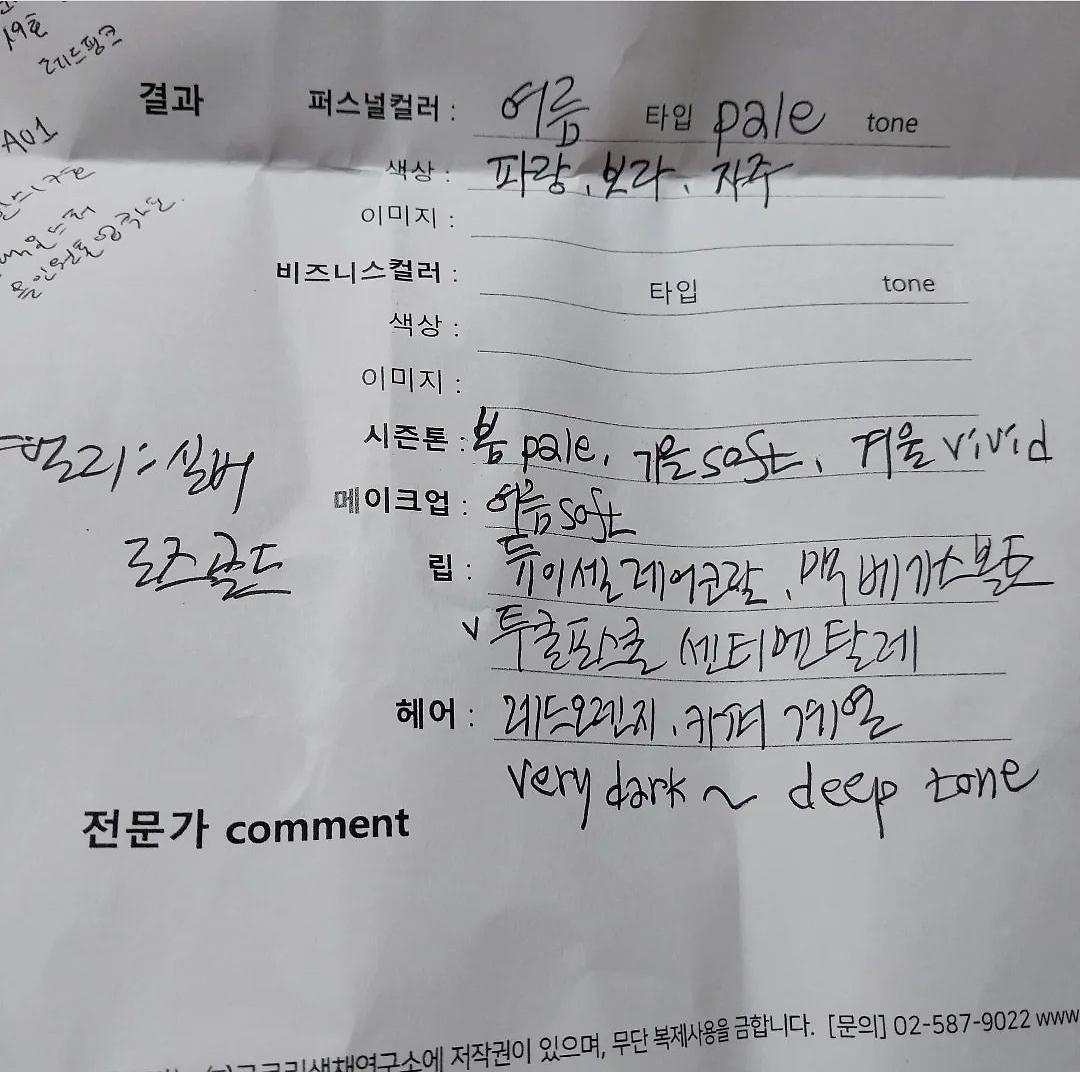 19호
레드핑크
결과 퍼스널컬러 : 여름 타입 pale tone
A01
색상 : 파랑, 보라, 자주
이미지 :
비즈니스컬러 : 타입 tone
색상 :
이미지 :
시즌톤 : 봄 pale, 가을 soft, 겨울 vivid
쥬얼리 : 실버
로즈골드
메이크업 : 여름 soft
립 : 듀이셀 레어코랄, 맥 베가스볼트
v 투쿨포스쿨 센티멘탈레
헤어 : 레드오렌지, 카퍼 계열
very dark ~ deep tone
전문가 comment
색채연구소에 저작권이 있으며, 무단 복제사용을 금합니다. [문의] 02-587-9022 www